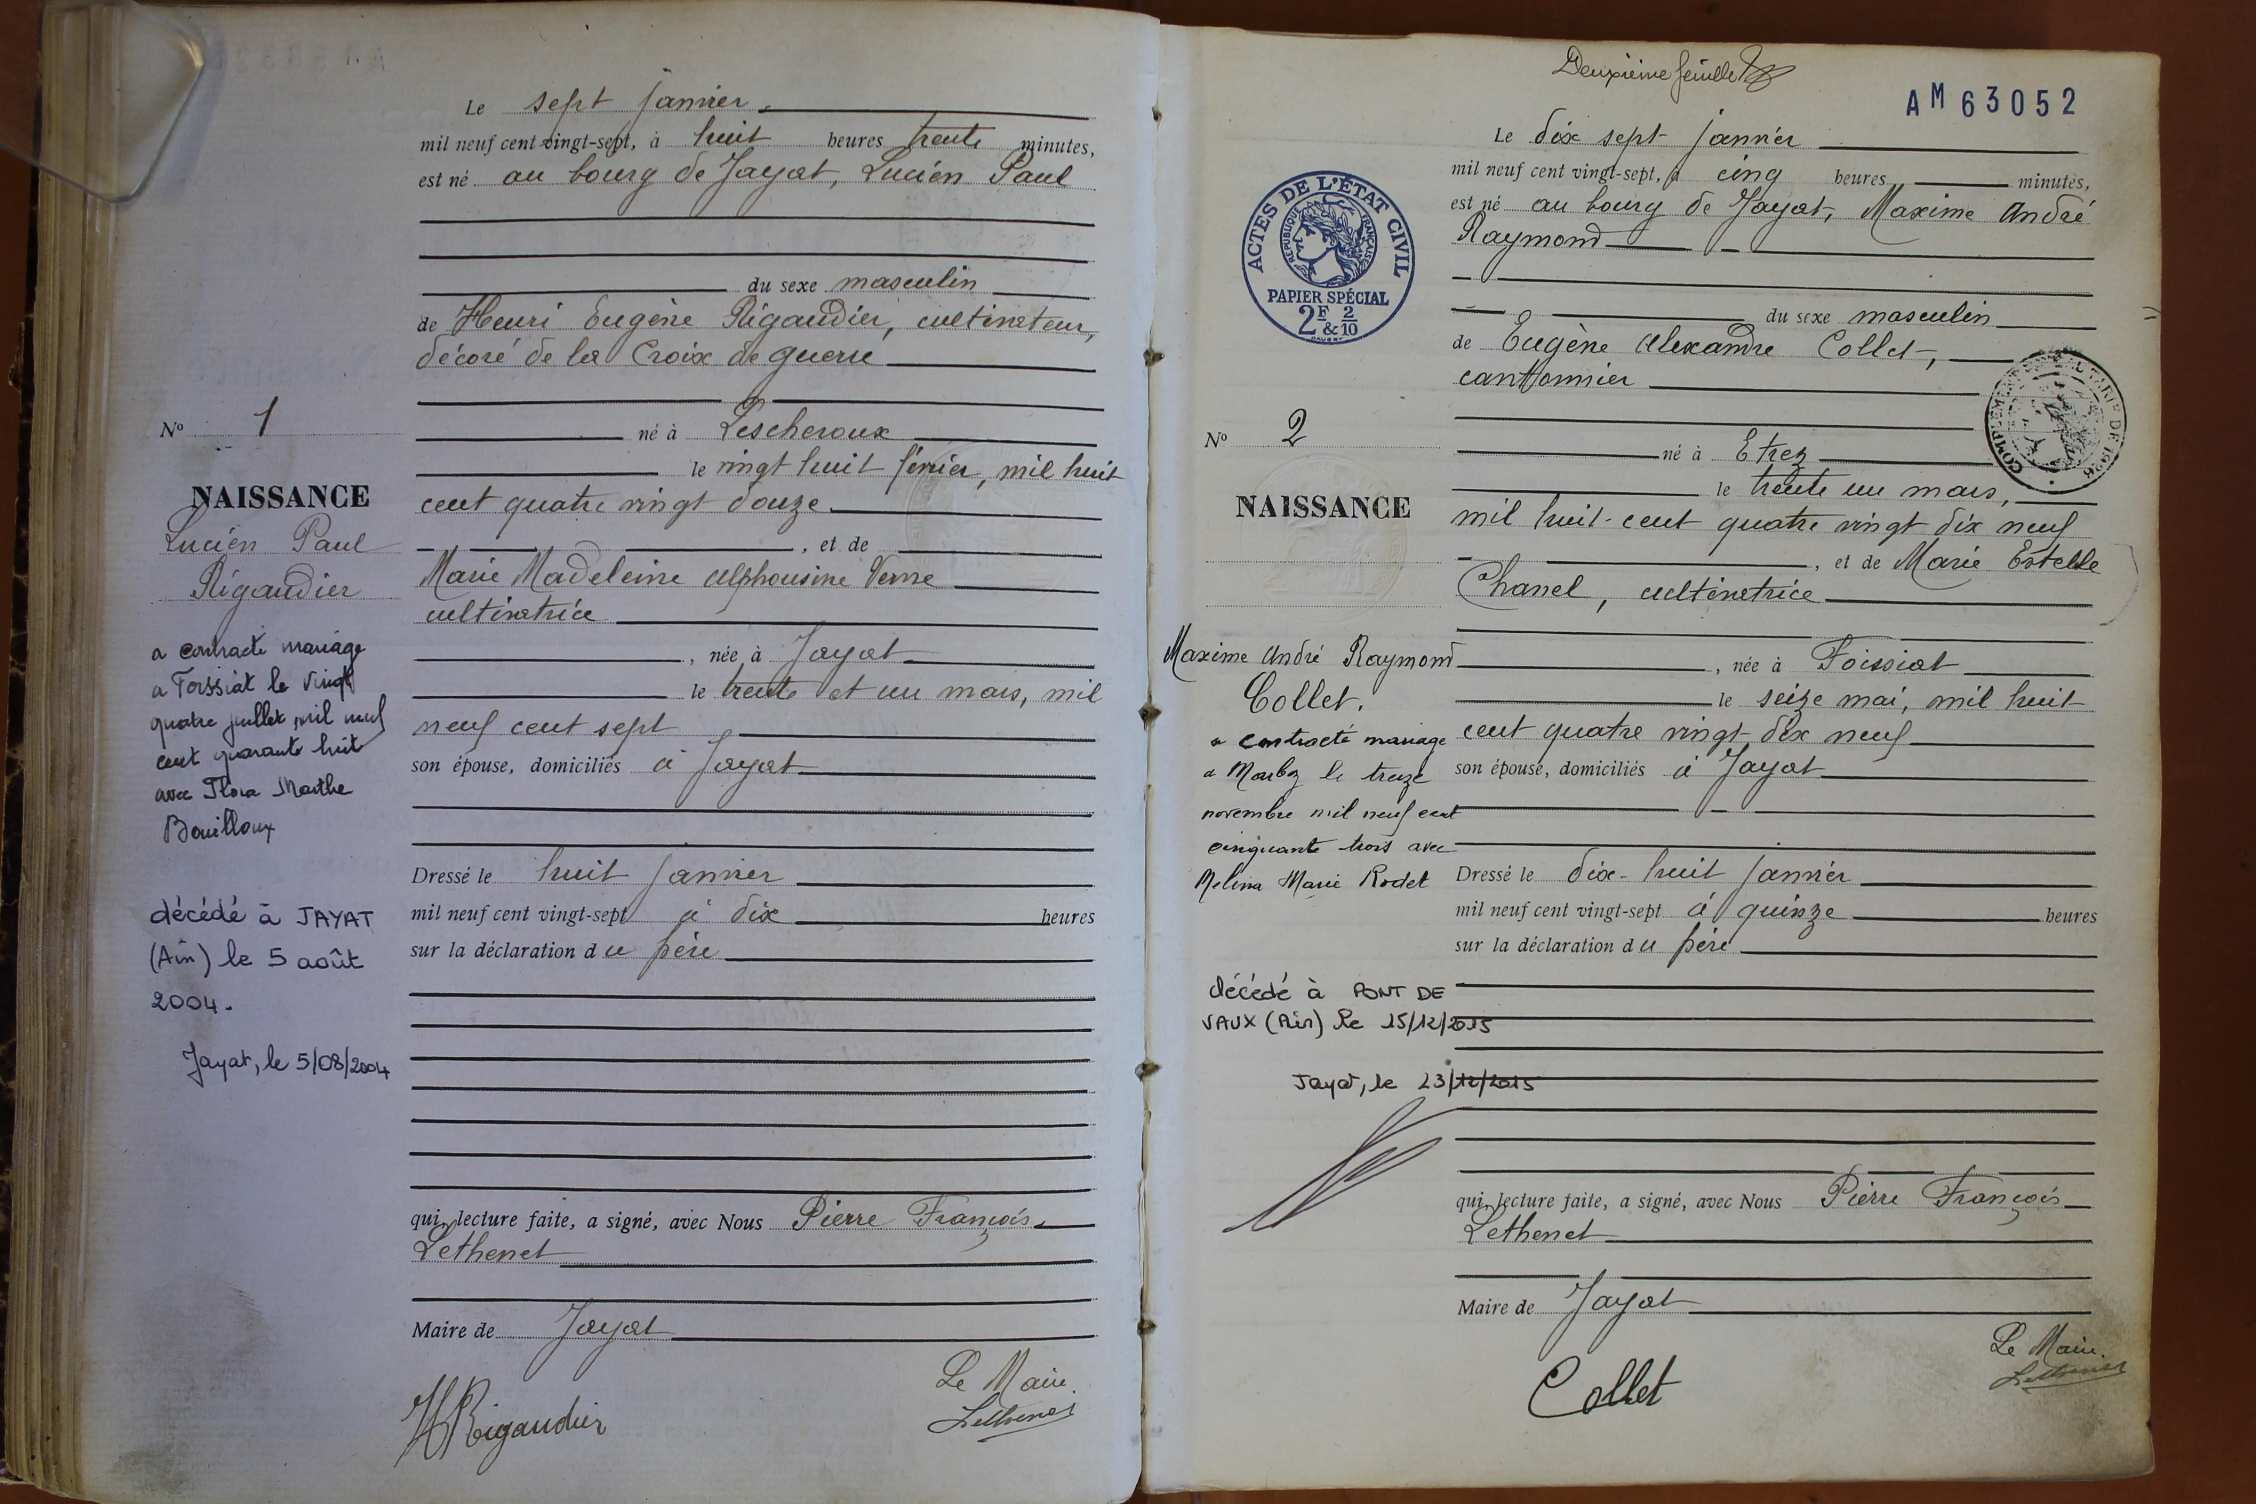 Le sept janvier
mil neuf cent vingt-sept, à huit heures trente minutes,
est né au bourg de Jayat, Lucien Paul
du sexe masculin
de Henri Eugène Rigaudier, cultivateur,
décoré de la Croix de guerre
né à Lescheroux
le vingt huit février, mil huit
cent quatre vingt douze
, et de
Marie Madeleine Alphonsine Verne
cultivatrice
, née à Jayat
le trente et un mars, mil
neuf cent sept
son épouse, domiciliés à Jayat
Dressé le huit janvier
mil neuf cent vingt-sept à dix heures
sur la déclaration du père
qui, lecture faite, a signé, avec Nous Pierre François
Lethenet
Maire de Jayat
Le Maire
Lethenet
HRigaudier
No 1
NAISSANCE
Lucien Paul
Rigaudier
a contracté mariage
a Foissiat le vingt
quatre juillet mil neuf
cent quarante huit
avec Flora Marthe
Bouilloux
décédé à JAYAT
(Ain) le 5 août
2004.
Jayat, le 5/08/2004
Deuxième feuille
AM 63052
Le dix sept janvier
mil neuf cent vingt-sept, à cinq heures minutes,
est né au bourg de Jayat, Maxime André
Raymond
du sexe masculin
de Eugène Alexandre Collet,
cantonnier
né à Etrez
le trente un mars,
mil huit-cent quatre vingt dix neuf
, et de Marie Estelle
Chanel, cultivatrice
, née à Foissiat
le seize mai, mil huit
cent quatre vingt dix neuf
son épouse, domiciliés à Jayat
Dressé le dix-huit janvier
mil neuf cent vingt-sept à quinze heures
sur la déclaration du père
qui, lecture faite, a signé, avec Nous Pierre François
Lethenet
Maire de Jayat
Le Maire
Lethenet
Collet
ACTES DE L'ÉTAT CIVIL
RÉPUBLIQUE FRANÇAISE
PAPIER SPÉCIAL
2F & 2/10
No 2
NAISSANCE
Maxime André Raymond
Collet.
a contracté mariage
a Marboz le treize
novembre mil neuf cent
cinquante trois avec
Melina Marie Rodet
décédé à PONT DE
VAUX (Ain) le 15/12/2015
Jayat, le 23/12/2015